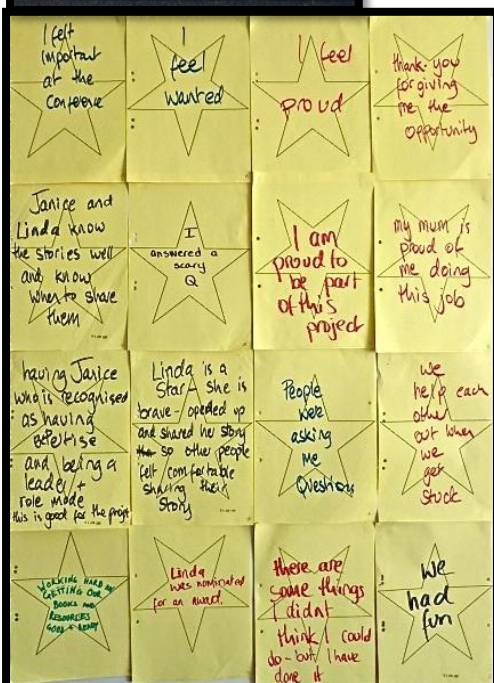 I felt
important
at the
Conference
I
feel
wanted
I feel
proud
thank-you
for giving
me the
opportunity
Janice and
Linda know
the stories well
and know
when to share
them
I
answered a
scary
Q
I am
proud to
be part
of this
project
my mum is
proud of
me doing
this job
having Janice
who is recognised
as having
expertise
and being a
leader +
role mode
this is good for the projet
Linda is a
Star - she is
brave - opended up
and shared her story
so other people
felt comfortable
sharing their
Story
People
were
asking
me
Questions
we
help each
other
out when
we
get
stuck
WORKING HARD ON
GETTING OUR
BOOKS AND
RESOURCES
GOOD + READY
Linda
was nominated
for an award.
there are
some things
I didnt
think I could
do - but I have
done it
We
had
fun